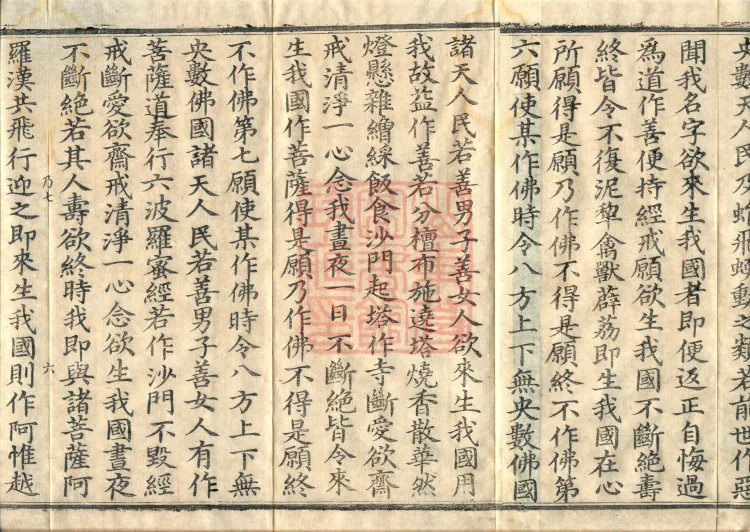 央數天人民乃蜎飛蠕動之類若前世作惡
聞我名字欲來生我國者即便返正自悔過
為道作善便持經戒願欲生我國不斷絕壽
終皆令不復泥犁禽獸薜荔即生我國在心
所願得是願乃作佛不得是願終不作佛第
六願使某作佛時令八方上下無央數佛國
諸天人民若善男子善女人欲來生我國用
我故益作善若分檀布施遶塔燒香散華然
燈懸雜繒綵飯食沙門起塔作寺斷愛欲齋
戒清淨一心念我晝夜一日不斷絕皆令來
生我國作菩薩得是願乃作佛不得是願終
不作佛第七願使某作佛時令八方上下無
央數佛國諸天人民若善男子善女人有作
菩薩道奉行六波羅蜜經若作沙門不毀經
戒斷愛欲齋戒清淨一心念欲生我國晝夜
不斷絕若其人壽欲終時我即與諸菩薩阿
乃七 六
羅漢共飛行迎之即來生我國則作阿惟越